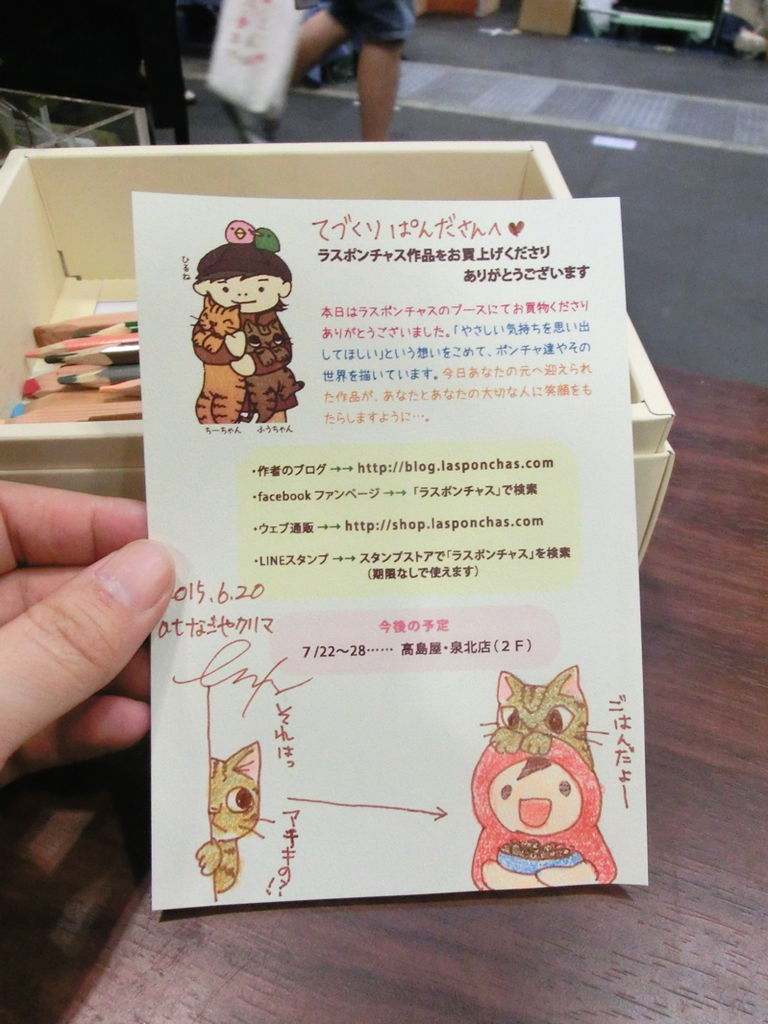 てづくり ぱんださんへ♥
ラスポンチャス作品をお買上げくださり
ありがとうございます
ひるね
ちーちゃん ふうちゃん
本日はラスポンチャスのブースにてお買物くださり
ありがとうございました。「やさしい気持ちを思い出
してほしい」という想いをこめて、ポンチャ達やその
世界を描いています。今日あなたの元へ迎えられ
た作品が、あなたとあなたの大切な人に笑顔をも
たらしますように…。
・作者のブログ →→ http://blog.lasponchas.com
・facebook ファンページ →→ 「ラスポンチャス」で検索
・ウェブ通販 →→ http://shop.lasponchas.com
・LINEスタンプ →→ スタンプストアで「ラスポンチャス」を検索
(期限なしで使えます)
2015.6.20
at なごやクリマ
今後の予定
7/22～28…… 高島屋・泉北店(2F)
それはっ
アチキの?!!
ごはんだよー